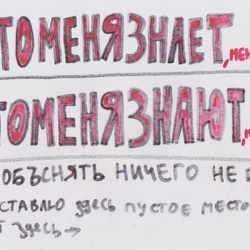 ТОМЕНЯЗНАЕТ,
ТОМЕНЯЗНАЮТ,
ОБЪСНЯТЬ НИЧЕГО НЕ
СТАВЛЮ здесь ПУСТОЕ МЕСТО
Т здесь →